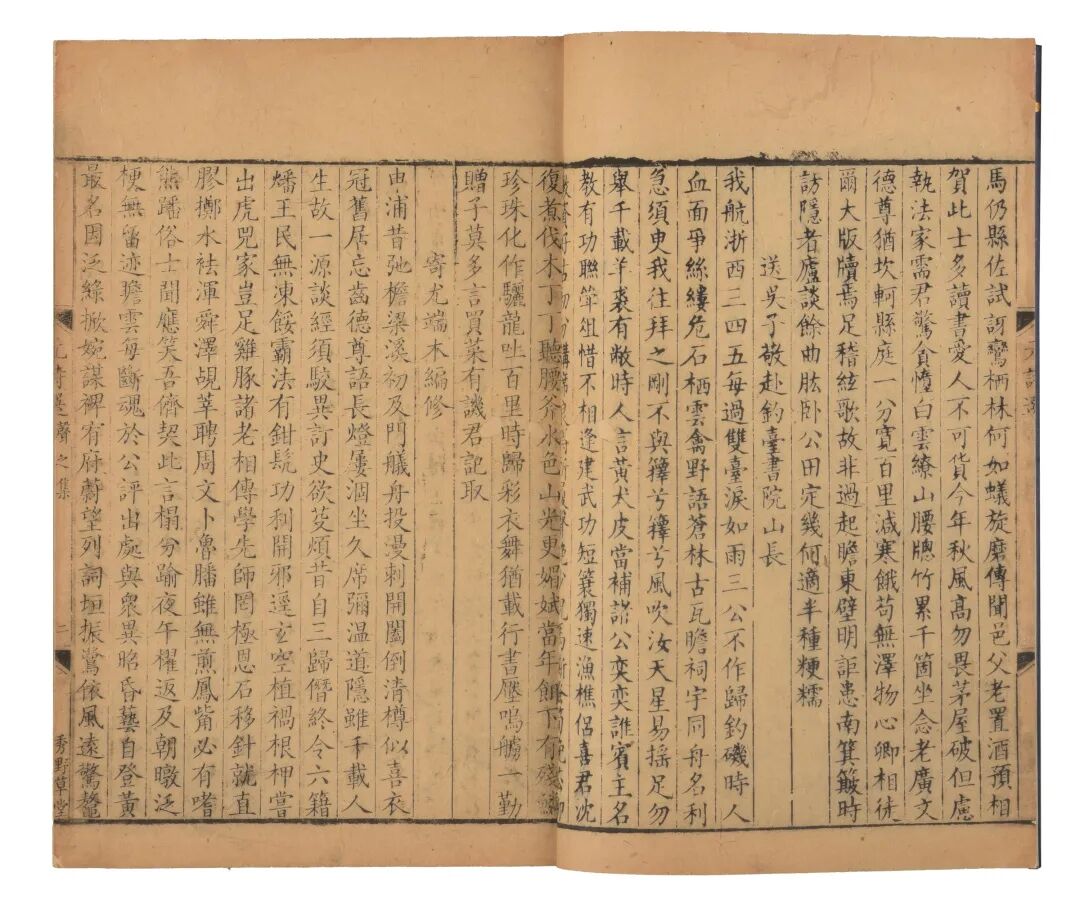 馬仍縣佐試訝鸞栖林何如蟻旋磨傳聞邑父老置酒預相
賀此士多讀書愛人不可貨今年秋風高勿畏茅屋破但慮
執法家需君驚負憤白雲繚山腰牕竹累千箇坐念老廣文
德尊猶坎軻縣庭一分寬百里減寒餓苟無澤物心卿相徒
爾大版牘焉足稽絃歌故非過起瞻東壁明詎患南箕簸時
訪隱者廬談餘曲肱卧公田定幾何適半種粳糯
送吳子敬赴釣臺書院山長
我航浙西三四五每過雙臺淚如雨三公不作歸釣磯時人
血面爭絲縷危石栖雲禽野語蒼林古瓦瞻祠宇同舟名利
急須臾我往拜之剛不與籜兮籜兮風吹汝天星易搖足勿
舉千載羊裘有敝時人言黃犬皮當補諸公奕奕誰賓主名
教有功聯爼惜不相逢建武功短簑獨速漁樵侶喜君沈
復煮伐木丁丁聽腰斧水色山光更媚斌當年餌下有殘
珍珠化作驪龍吐百里時歸彩衣舞猶載行書壓鳴艣一勤
贈子莫多言買菜有譏君記取
寄尤端木編修
由浦昔弛檐梁溪初及門艤舟投漫刺開閤倒清樽似喜衣
冠舊居忘齒德尊語長燈屢涸坐久席彌温道隱雖千載人
生故一源談經須駮異討史欲芟煩昔自三歸僭終令六籍
燔王民無凍餒霸法有鉗髡功利開邪逕玄空植禍根柙嘗
出虎兕家豈足雞豚諸老相傳學先師罔極恩石移針就直
膠擲水袪渾舜澤覘莘聘周文卜魯膰雖無煎鳳觜必有嗜
熊蹯俗士聞應笑吾儕契此言榻分踰夜午櫂返及朝暾泛
梗無留迹瞻雲每斷魂於公評出處與衆異昭昏藝自登黃
最名因泛綠掀婉謀裨宥府蔚望列詞垣振鷺依風遠驚鼇
之集
二
秀野草堂